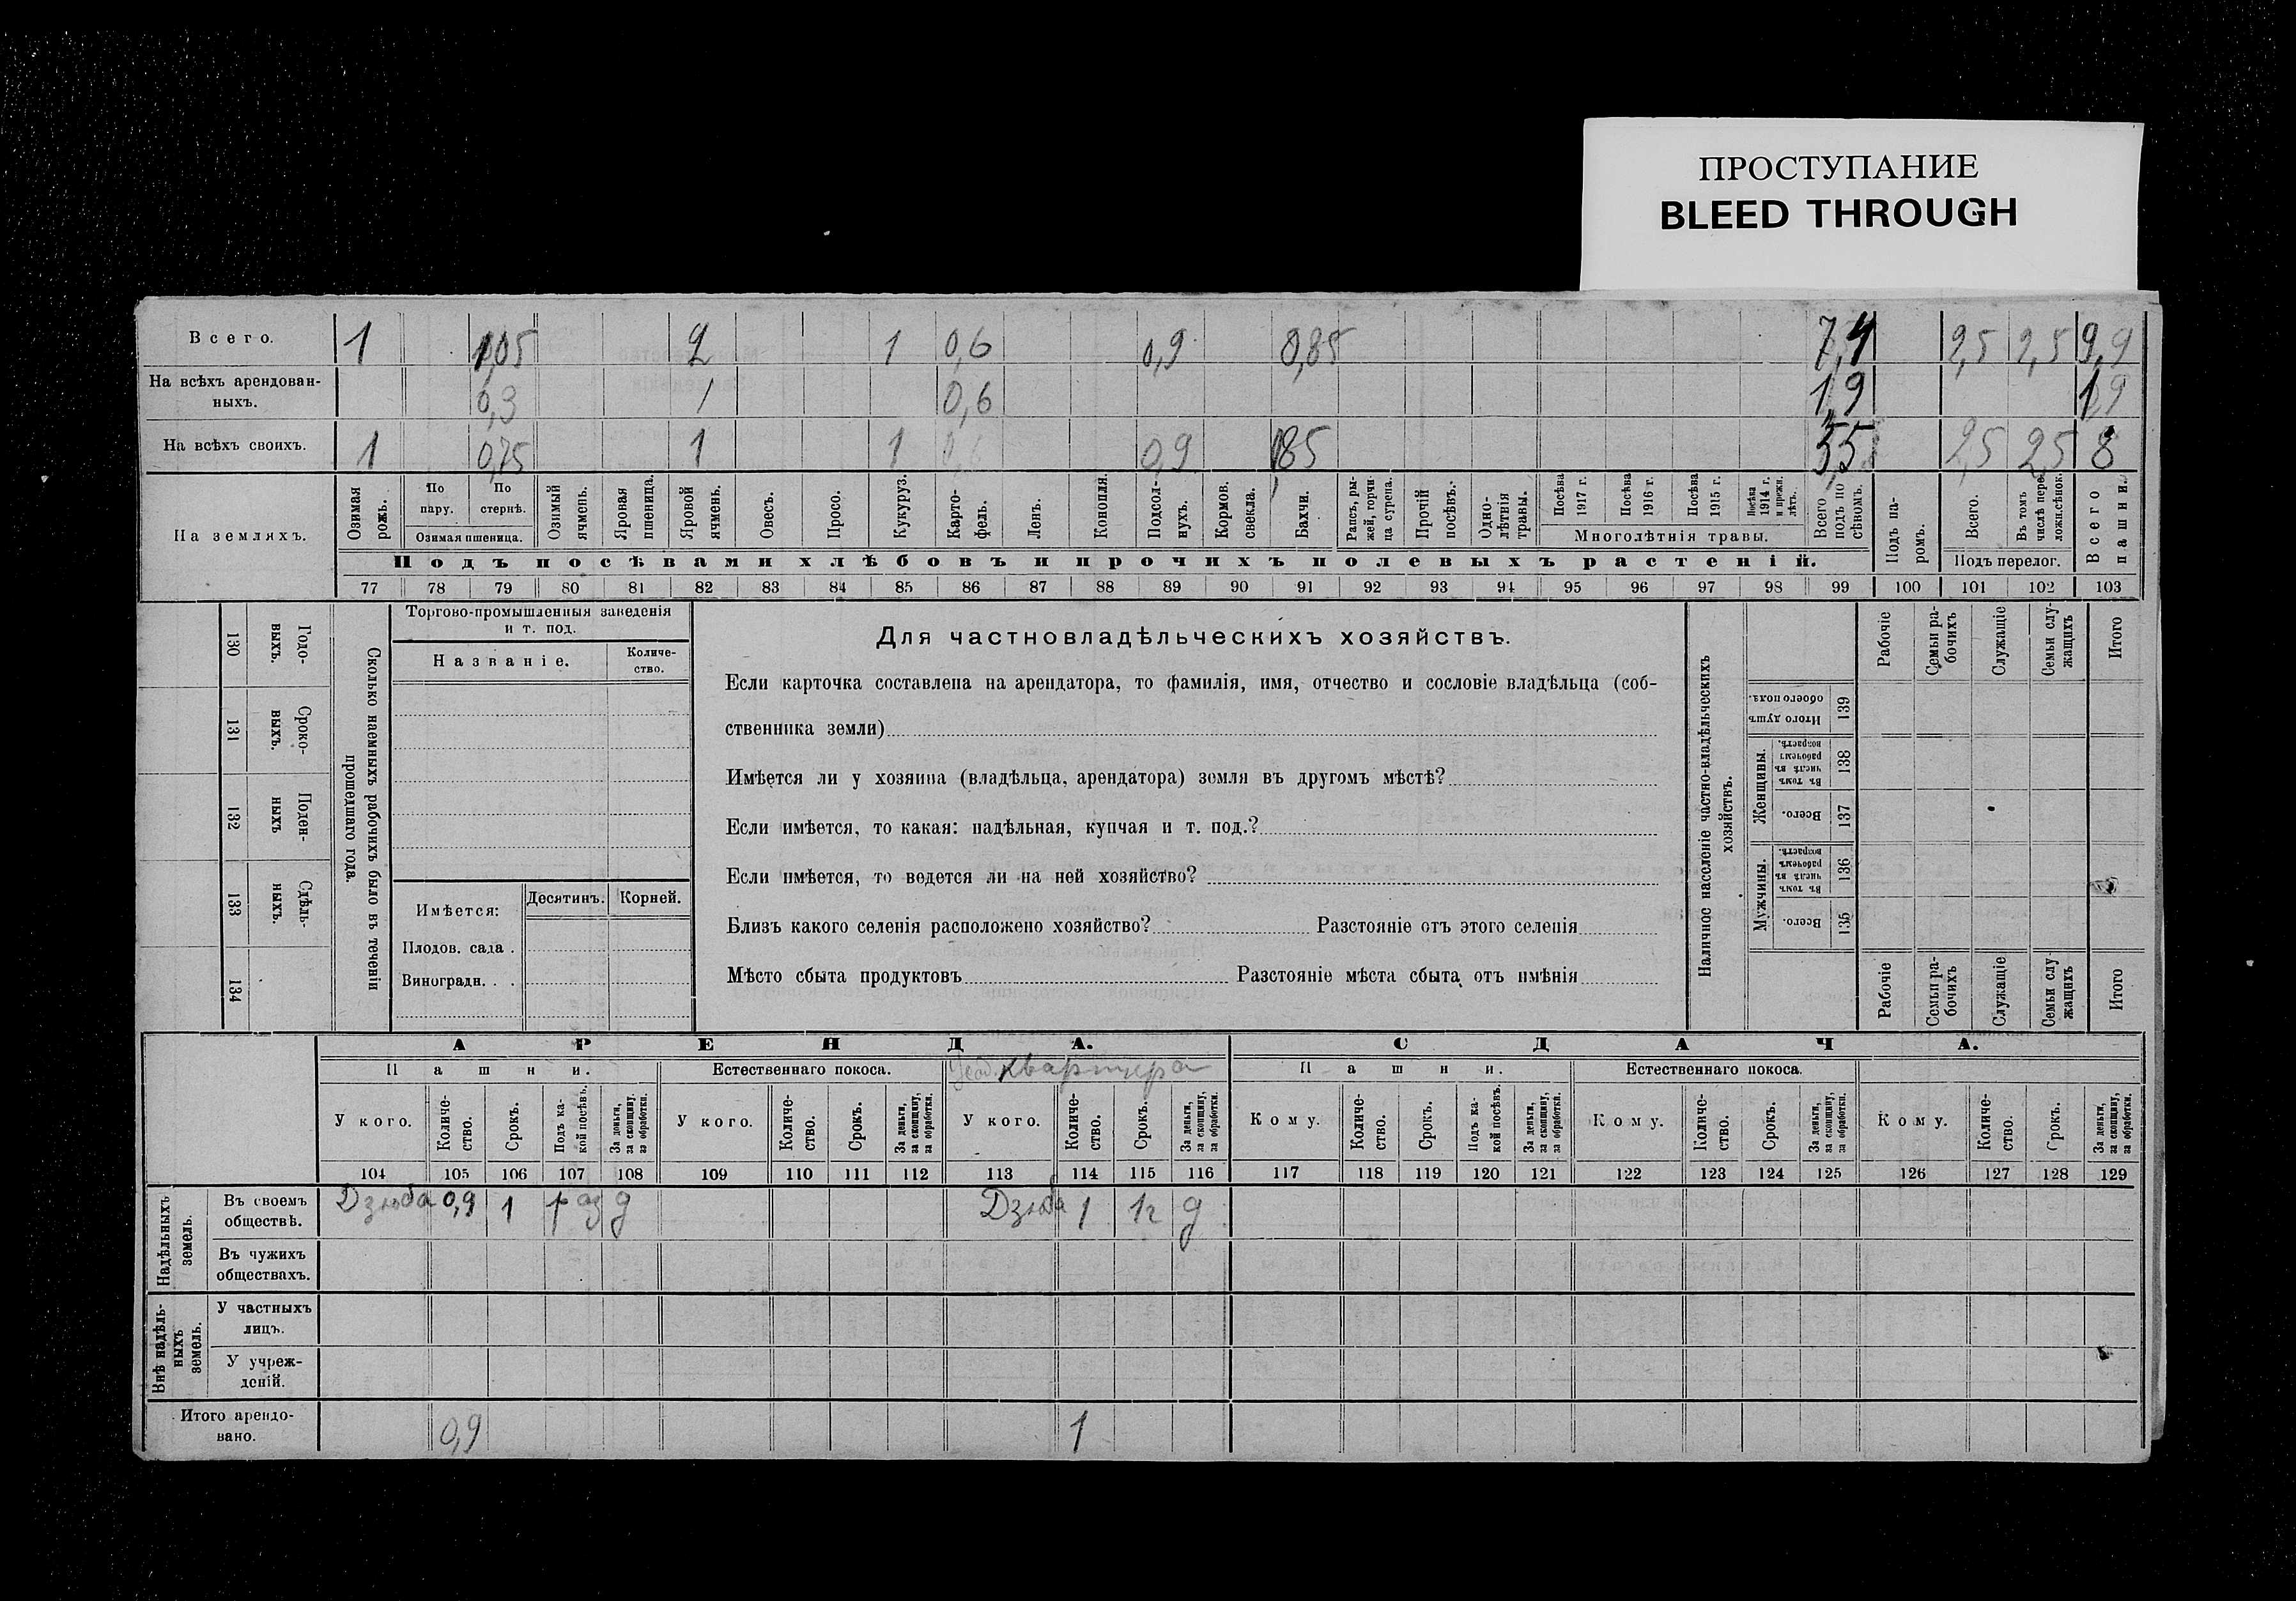 ПРОСТУПАНИЕ
BLEED THROUGH
Всего. 1 1,05 2 1 0,6 0,9 0,85 7,4 2,5 2,5 9,9
На всѣхъ арендован-
ныхъ. 0,3 1 0,6 1,9 1,9
На всѣхъ своихъ. 1 0,75 1 1 0,9 5,5 2,5 2,5 8
На земляхъ.
Озимая рожь.
По пару.
По стернѣ.
Озимая пшеница.
Озимый ячмень.
Яровая пшеница.
Яровой ячмень.
Овесъ.
Просо.
Кукуруз.
Карто-
фель.
Ленъ.
Конопля.
Подсол-
нухъ.
Кормов. свекла.
Бахчи.
Рапсъ, ры-
жей, горчи-
ца сурепа.
Прочій посѣвъ.
Одно-
лѣтнія травы.
Посѣва 1917 г.
Посѣва 1916 г.
Посѣва 1915 г.
Посѣва 1914 г. и прежн. лѣтъ.
Многолѣтнія травы.
Всего подъ по
сѣвомъ.
Подъ па-
ромъ.
Всего.
Въ томъ числѣ пере
ложн. сѣнок.
Подъ перелог.
Всего пашни.
Подъ посѣвами хлѣбовъ и прочихъ полевыхъ растеній.
77 78 79 80 81 82 83 84 85 86 87 88 89 90 91 92 93 94 95 96 97 98 99 100 101 102 103
130 Годо-
выхъ.
131 Сроко-
выхъ.
132 Поден-
ныхъ
133 Сдѣль-
ныхъ.
134
Сколько наемныхъ рабочихъ было въ теченіи
прошедшаго года.
Торгово-промышленныя заведенія
и т. под.
Названіе.
Количе-
ство.
Имѣется:
Десятинъ.
Корней.
Плодов. сада .
Виноградн. . .
Для частновладѣльческихъ хозяйствъ.
Если карточка составлена на арендатора, то фамилія, имя, отчество и сословіе владѣльца (соб-
ственника земли)
Имѣется ли у хозяина (владѣльца, арендатора) земля въ другомъ мѣстѣ?
Если имѣется, то какая: надѣльная, купчая и т. под.?
Если имѣется, то ведется ли на ней хозяйство?
Близъ какого селенія расположено хозяйство? Разстояніе отъ этого селенія
Мѣсто сбыта продуктовъ Разстояніе мѣста сбыта отъ имѣнія
Наличное населеніе частно-владѣльческихъ
хозяйствъ.
Рабочіе
Семьи ра-
бочихъ
Служащіе
Семьи слу-
жащихъ
Итого
Итого душъ обоего пола. 139
Женщины.
Въ томъ числѣ въ рабочемъ возрастѣ. 138
Всего. 137
Мужчины.
Въ томъ числѣ въ рабочемъ возрастѣ. 136
Всего. 135
Рабочіе
Семьи ра-
бочихъ
Служащіе
Семьи слу
жащихъ
Итого
АРЕНДА.
СДАЧА.
Пашни.
Естественнаго покоса.
квартира
Пашни.
Естественнаго покоса.
У кого.
Количе-
ство.
Срокъ.
Подъ ка-
кой посѣвъ.
За деньги,
за скопщину,
за обработки.
У кого.
Количе-
ство.
Срокъ.
За деньги,
за скопщину,
за обработки.
У кого.
Количе-
ство.
Срокъ.
За деньги,
за скопщину,
за обработки.
Кому.
Количе-
ство.
Срокъ.
Подъ ка-
кой посѣвъ.
За деньги,
за скопщину,
за обработки.
Кому.
Количе-
ство.
Срокъ.
За деньги,
за скопщину,
за обработки.
Кому.
Количе-
ство.
Срокъ.
За деньги,
за скопщину,
за обработки.
104 105 106 107 108 109 110 111 112 113 114 115 116 117 118 119 120 121 122 123 124 125 126 127 128 129
Надѣльныхъ
земель.
Въ своемъ
обществѣ.
Дзюба 0,9 1 раз д Дзюба 1 1г д
Въ чужихъ
обществахъ.
Внѣ надѣль-
ныхъ
земель.
У частныхъ
лицъ.
У учреж-
деній.
Итого арендо-
вано. 0,9 1